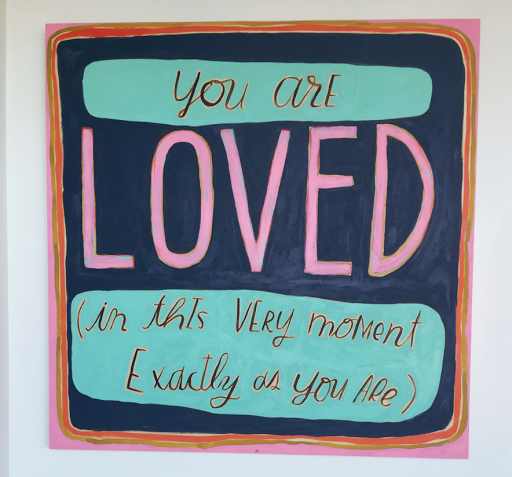 you are
LOVED
(in thIs VERy moMent
Exactly as you Are)